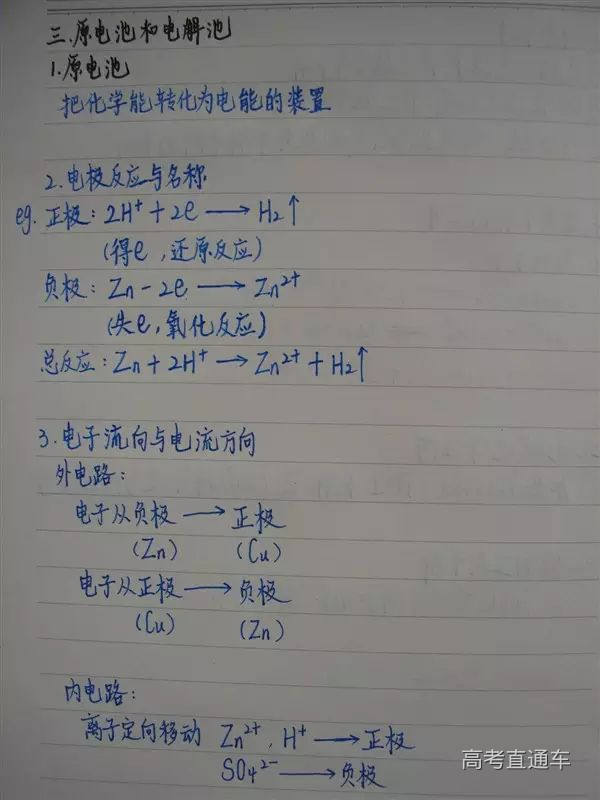 三.原电池和电解池
1.原电池
把化学能转化为电能的装置
2.电极反应与名称
eg. 正极：2H⁺ + 2e ⟶ H₂↑
(得e，还原反应)
负极：Zn - 2e ⟶ Zn²⁺
(失e，氧化反应)
总反应：Zn + 2H⁺ ⟶ Zn²⁺ + H₂↑
3.电子流向与电流方向
外电路：
电子从负极 ⟶ 正极
(Zn) (Cu)
电子从正极 ⟶ 负极
(Cu) (Zn)
内电路：
离子定向移动 Zn²⁺, H⁺ ⟶ 正极
SO₄²⁻ ⟶ 负极
高考直通车